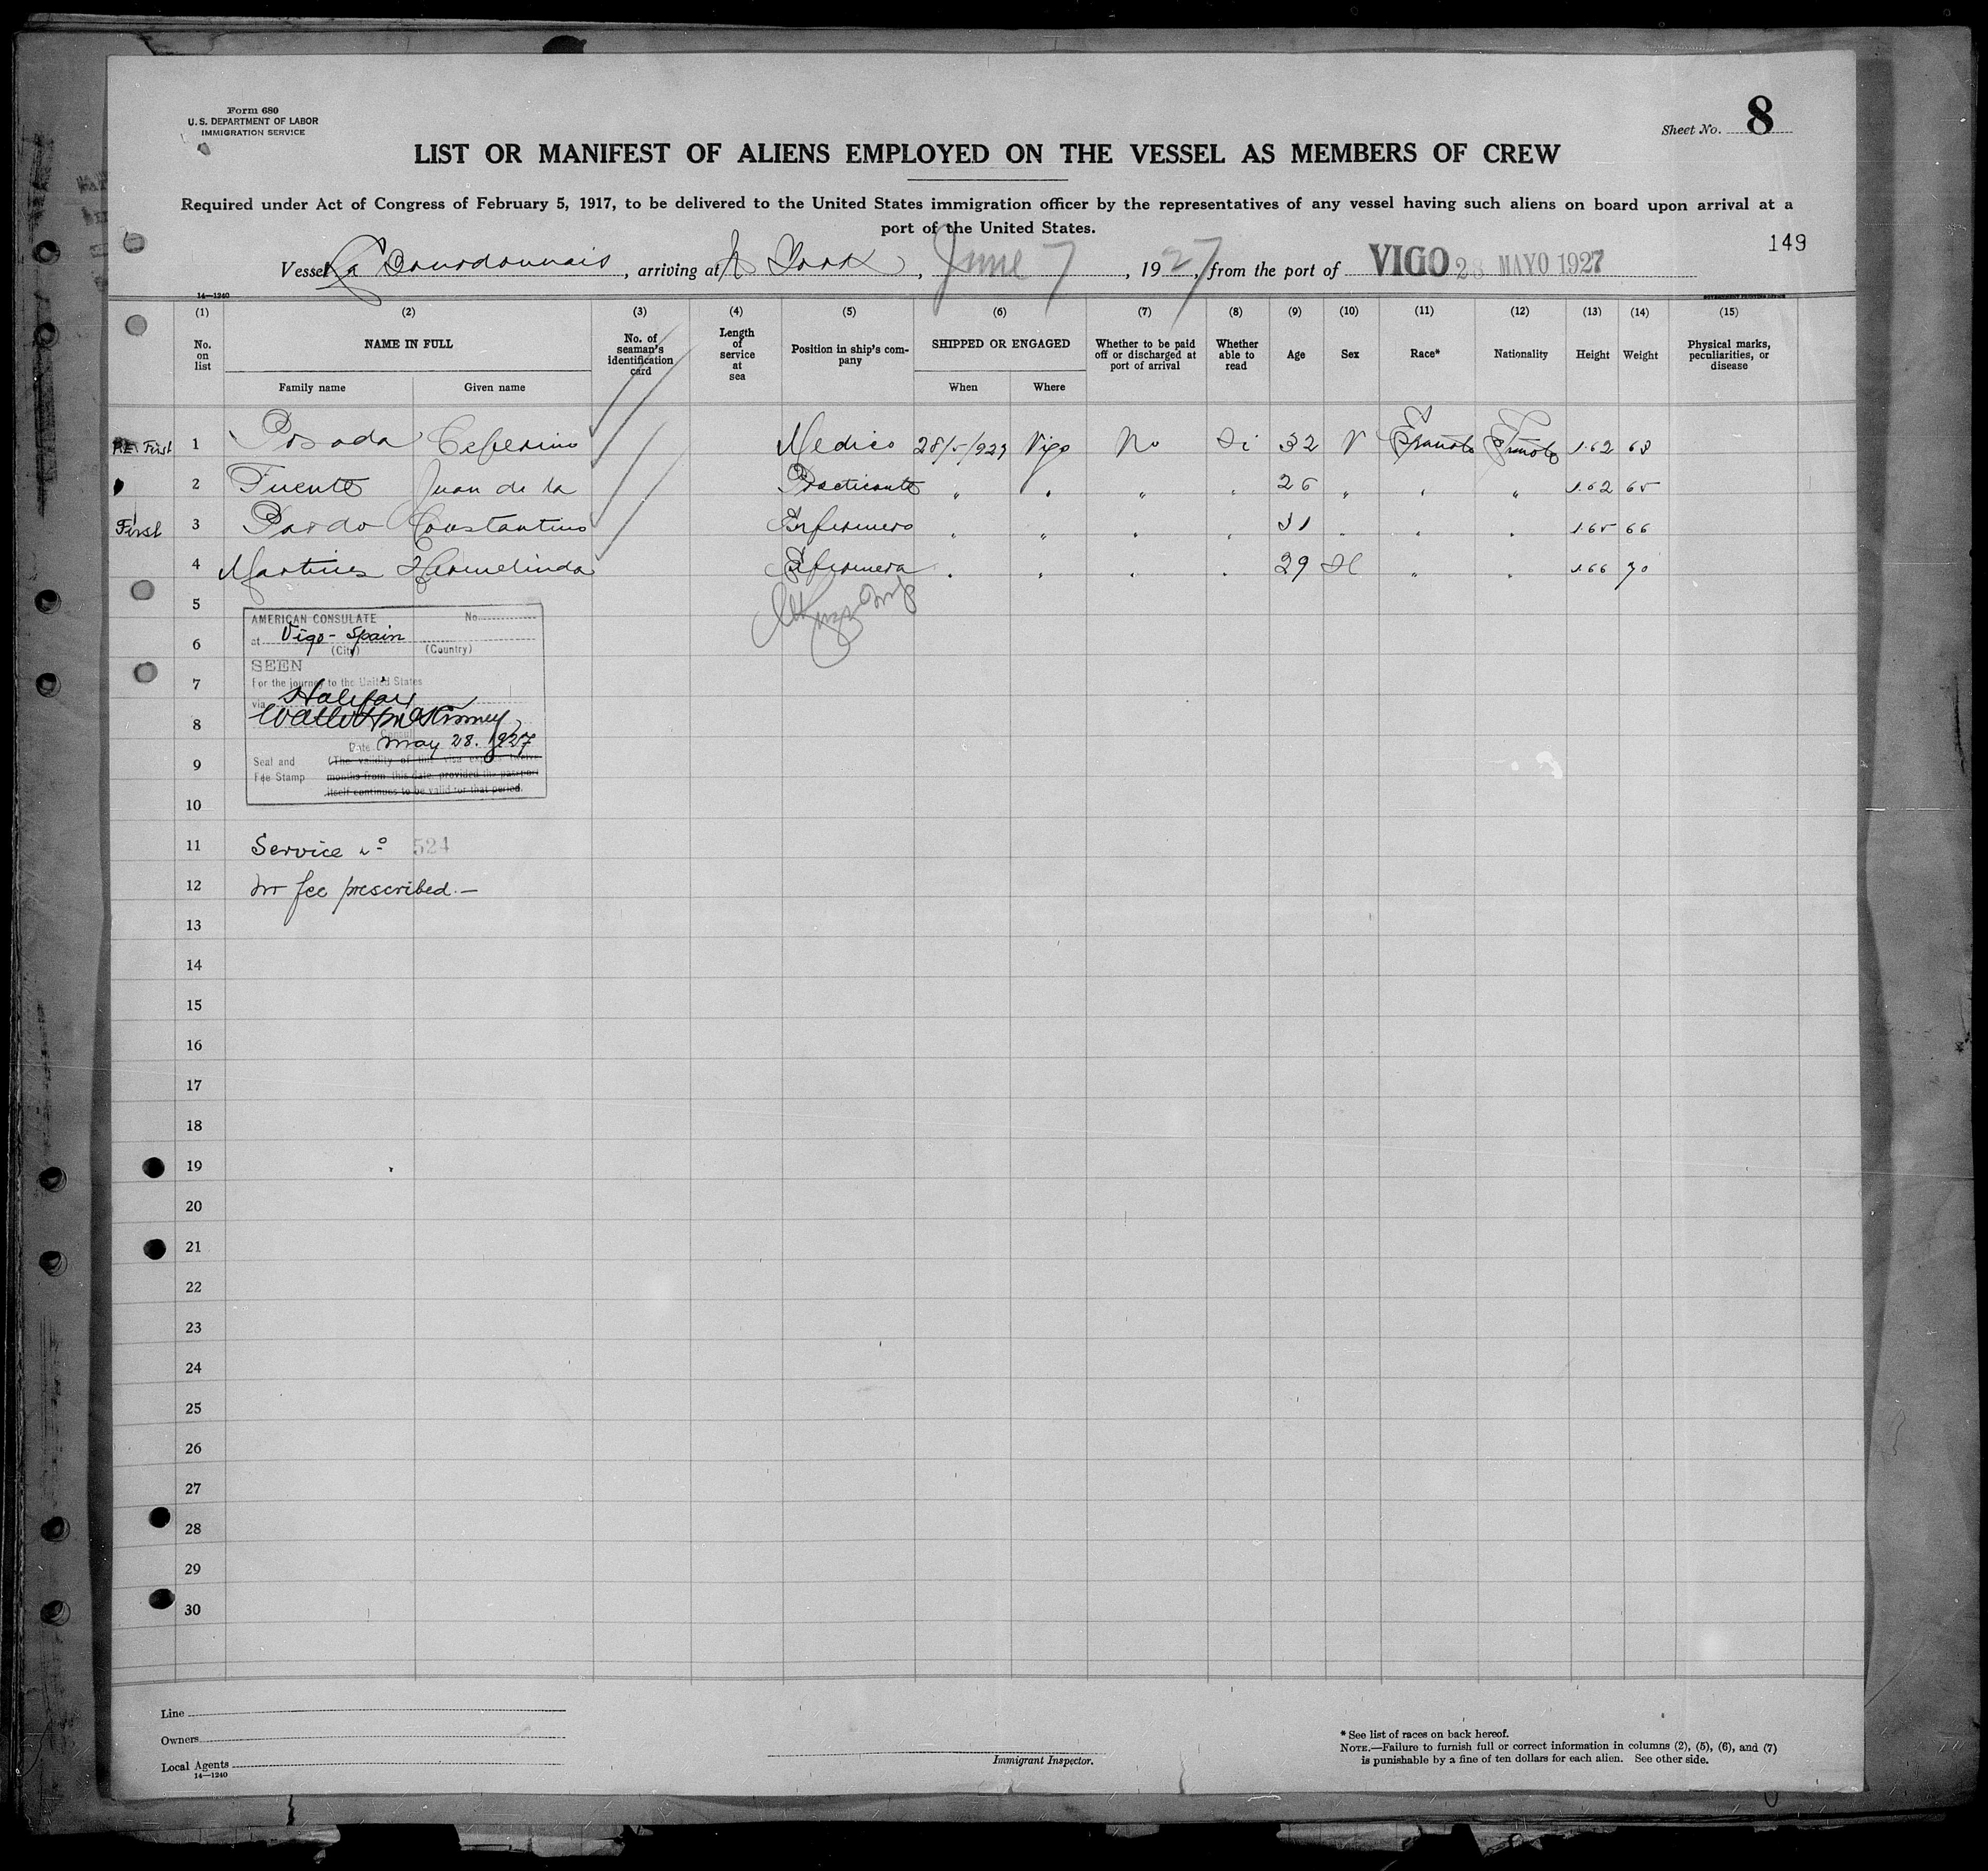 Form 680
U. S. DEPARTMENT OF LABOR
IMMIGRATION SERVICE
Sheet No. 8
LIST OR MANIFEST OF ALIENS EMPLOYED ON THE VESSEL AS MEMBERS OF CREW
Required under Act of Congress of February 5, 1917, to be delivered to the United States immigration officer by the representatives of any vessel having such aliens on board upon arrival at a
port of the United States.
149
Vessel La Bourdonnais, arriving at N York, June 7, 1927, from the port of VIGO 28 MAYO 1927
14—1240
GOVERNMENT PRINTING OFFICE
(1) (2) (3) (4) (5) (6) (7) (8) (9) (10) (11) (12) (13) (14) (15)
No. on list NAME IN FULL No. of seaman's identification card Length of service at sea Position in ship's company SHIPPED OR ENGAGED Whether to be paid off or discharged at port of arrival Whether able to read Age Sex Race* Nationality Height Weight Physical marks, peculiarities, or disease
Family name Given name When Where
First 1 Posada Ceferino Medico 28/5/927 Vigo No Si 32 V Español Español 1.62 68
2 Fuente Juan de la Practicante " " " " 26 " " " 1.62 65
First 3 Pardo Constantino Enfermero " " " " 31 " " " 1.65 66
4 Martines Hermelinda Enfermera " " " " 29 H " " 1.66 70
5
AMERICAN CONSULATE No.
at Vigo - Spain
(City) (Country)
6
SEEN
For the journey to the United States
7
via Halifax
8
Consul
Date May 28. 1927
9
Seal and Fee Stamp
(The validity of this visa expires twelve
months from this date provided the passport
itself continues to be valid for that period.
10
11 Service no 524
12 No fee prescribed.—
13
14
15
16
17
18
19
20
21
22
23
24
25
26
27
28
29
30
Line
Owners
Local Agents
14—1240
Immigrant Inspector.
* See list of races on back hereof.
NOTE.—Failure to furnish full or correct information in columns (2), (5), (6), and (7)
is punishable by a fine of ten dollars for each alien. See other side.